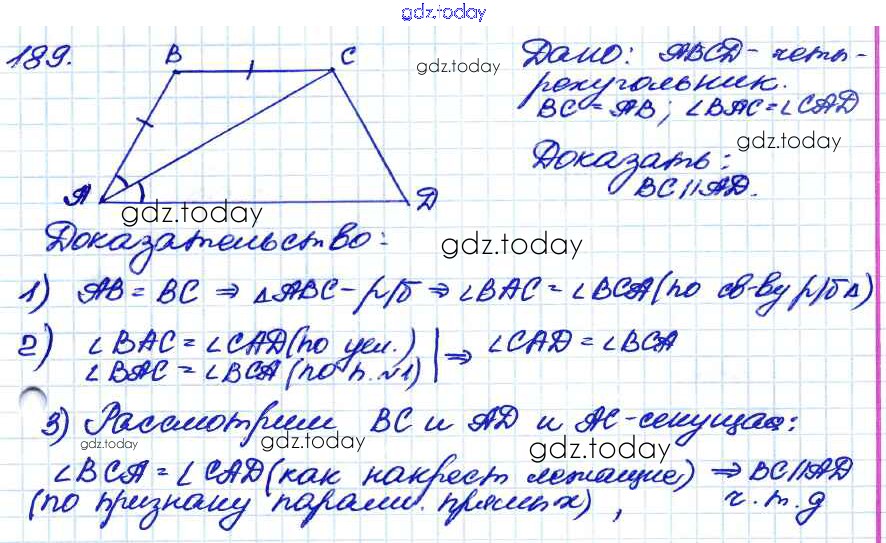 gdz.today
189.
B
C
gdz.today
Дано: ABCD - четы-
рехугольник.
BC = AB; ∠BAC = ∠CAD
gdz.today
Доказать:
BC || AD.
A
D
gdz.today
Доказательство:
gdz.today
1) AB = BC ⇒ △ABC - р/б ⇒ ∠BAC = ∠BCA (по св-ву р/б △)
2) ∠BAC = ∠CAD (по усл.) | ⇒ ∠CAD = ∠BCA
∠BAC = ∠BCA (по п. №1)
3) Рассмотрим BC и AD и AC - секущая:
gdz.today
gdz.today
gdz.today
∠BCA = ∠CAD (как накрест лежащие) ⇒ BC || AD
(по признаку паралл. прямых), ч.т.д